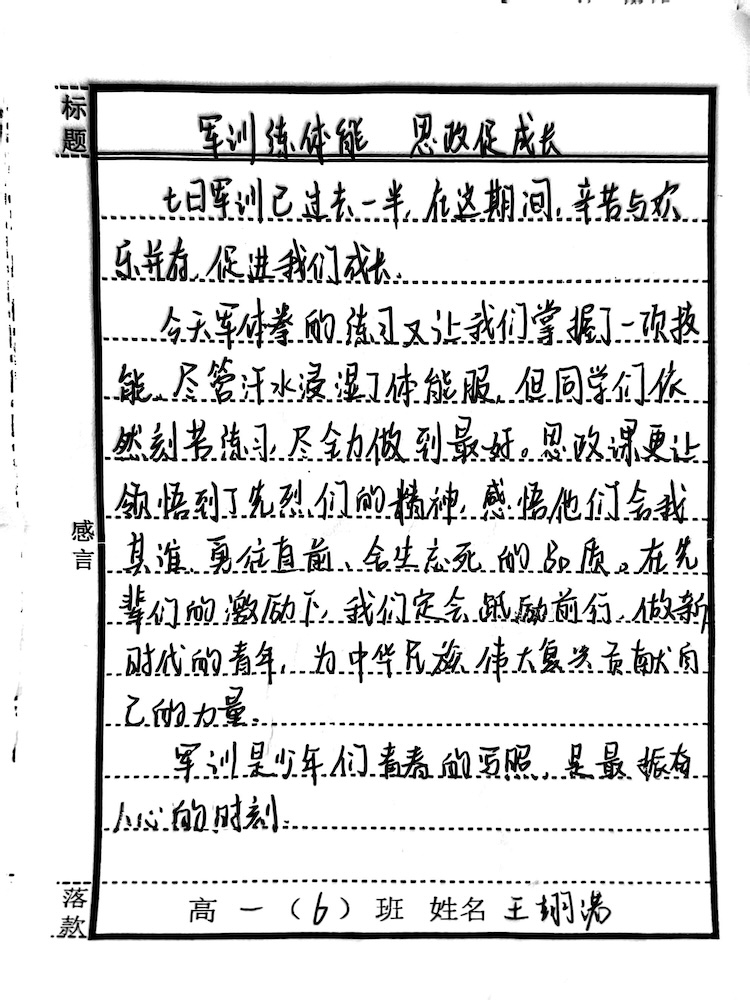 标题
军训练体能 思政促成长
七日军训已过去一半,在这期间,辛苦与欢
乐并存,促进我们成长.
今天军体拳的练习又让我们掌握了一项技
能,尽管汗水浸湿了体能服,但同学们依
然刻苦练习,尽全力做到最好。思政课更让
领悟到了先烈们的精神,感悟他们舍我
其谁、勇往直前、舍生忘死的品质。在先
辈们的激励下,我们定会砥励前行,做新
时代的青年,为中华民族伟大复兴贡献自
己的力量。
感言
军训是少年们青春的写照,是最振奋
人心的时刻.
落款
高一(6)班 姓名 王翊